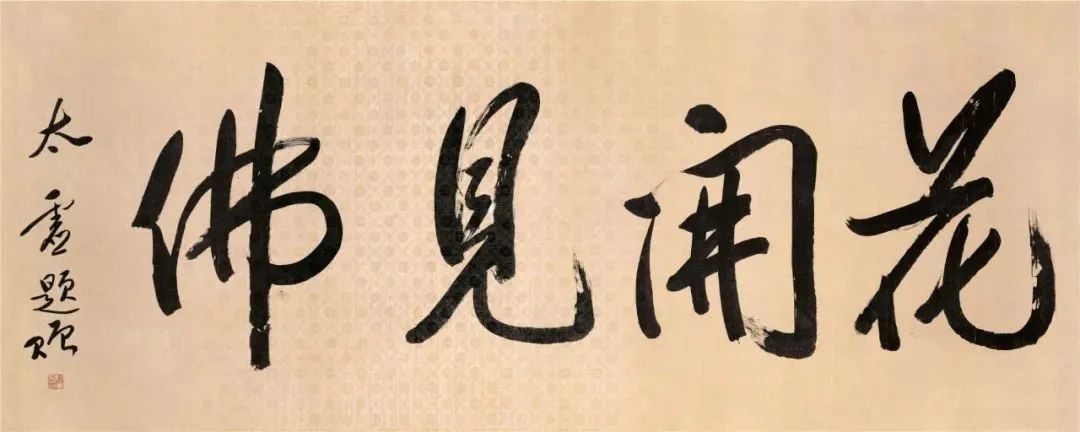 花開見佛
太虛題